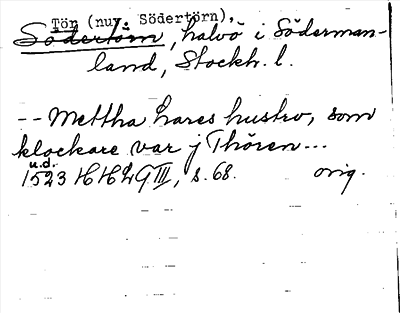 Tör (nuv. Södertörn),
Södertörn, halvö i Söderman-
land, Stockh. l.
-- Mettha hares hustro, som
klockare var j Thören...
u.d.
1523 HH 29 III, s. 68. orig.